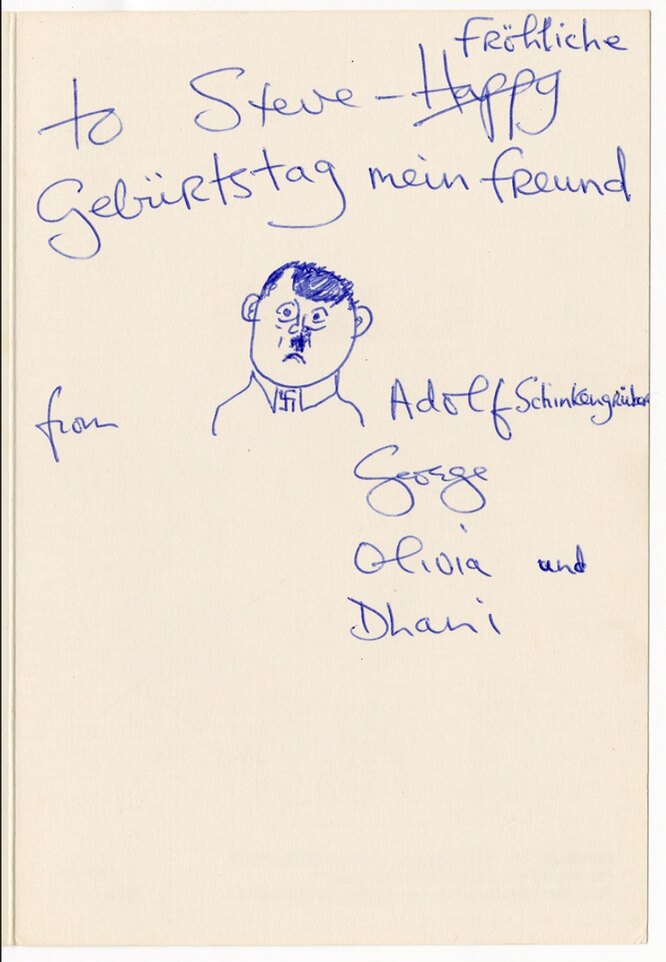 Fröhliche
to Steve - Happy
Gebürtstag mein freund
from
Adolf Schinkengrüber
George
Olivia und
Dhani